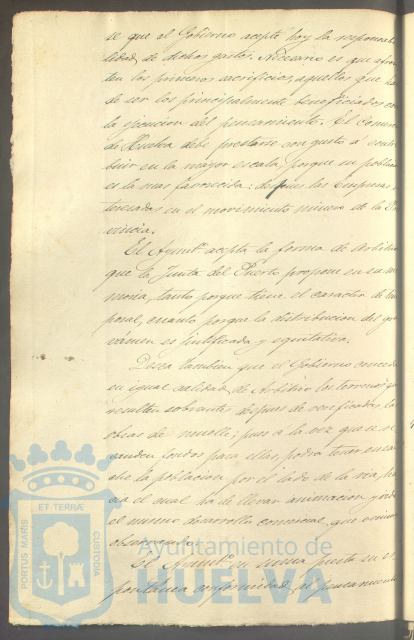 se que el Gobierno acepte hoy la responsabi
lidad de dichos gastos. Necesario es que afron
ten los primeros sacrificios, aquellos que han
de ser los principalmente beneficiados con
la ejecucion del pensamiento. El Comercio
de Huelva debe prestarse con gusto á contri
buir en la mayor escala, porque su poblacion
es la mas favorecida: despues las Empresas in
teresadas en el movimiento minero de la Pro
vincia.
El Ayuntº acepta la forma de Arbitrio
que la Junta del Puerto propone en su me
moria, tanto porque tiene el caracter de tem
poral, cuanto porque la distribucion del gra
vámen es justificada y equitativa.
Desea tambien que el Gobierno conceda
en igual calidad de Arbitrio los terrenos que
resulten sobrantes despues de verificadas las
obras de muelle; pues a la vez que se
fondos para ellas, podrá tener
che la poblacion por el lado de la ria,
cia el cual ha de llevar animacion y vida
el mismo desarrollo comercial, que
observando.
El Ayuntº en suma presta su es
pontánea conformidad al pensamiento
PORTUS MARIS
ET TERRÆ
CUSTODIA
Ayuntamiento de
HUELVA